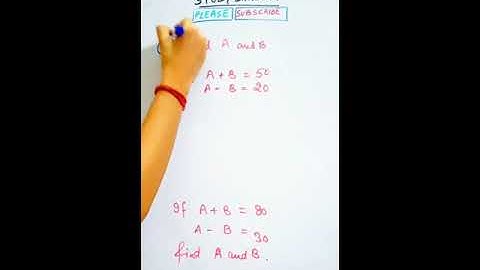 PLEASE SUBSCRIBE
A and B
A + B = 50
A - B = 20
If A + B = 80
A - B = 30
find A and B.